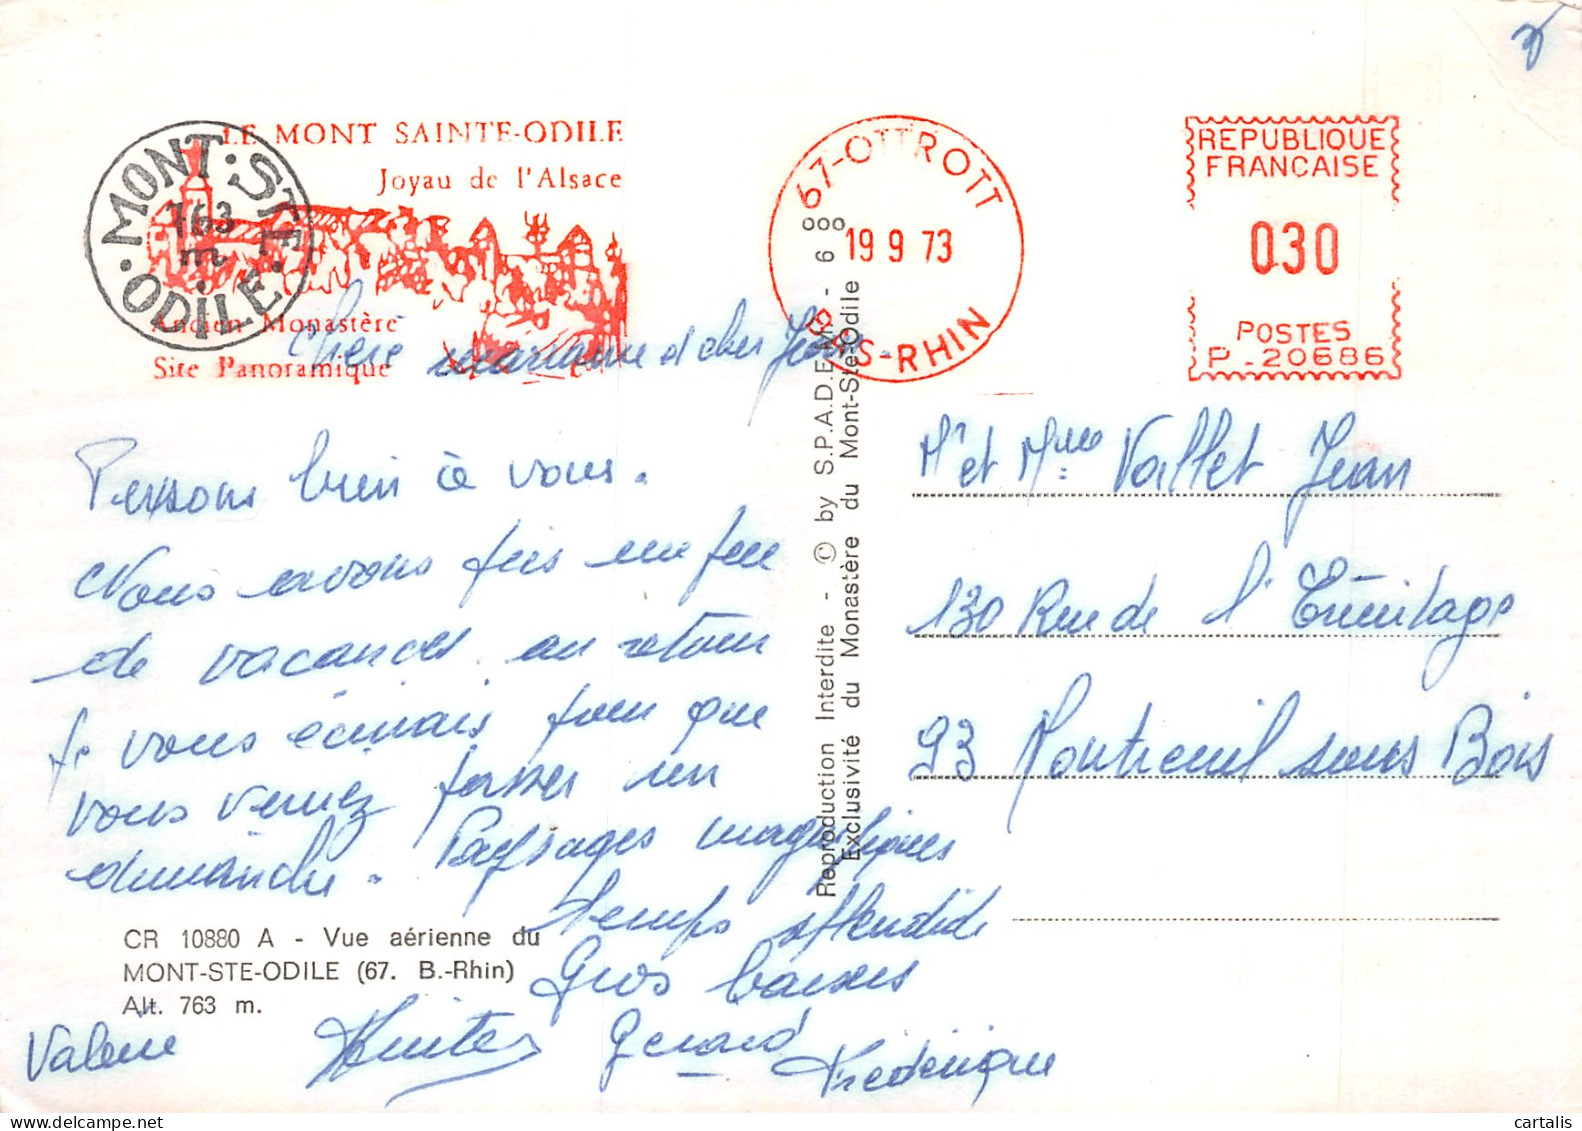 LE MONT SAINTE-ODILE
Joyau de l'Alsace
Ancien Monastère
Site Panoramique
MONT·STE·ODILE·
763
m
67-OTTROTT
19 9 73
BAS-RHIN
REPUBLIQUE
FRANCAISE
030
POSTES
P.20686
Chère marianne et cher Jean.
Pensons bien à vous.
Nous avons pris un peu
de vacances. au retour
je vous écrirais pour que
vous veniez passer un
dimanche. Paysages magnifiques
temps splendide
Gros baisers
Valérie
Gérard
Frédérique
Mr et Mme Vallet Jean
130 Rue de l'Ermitage
93 Montreuil sous Bois
Reproduction Interdite - © by S.P.A.D.E.M. - 6 88
Exclusivité du Monastère du Mont-Ste-Odile 88
CR 10880 A - Vue aérienne du
MONT-STE-ODILE (67. B.-Rhin)
Alt. 763 m.
cartalis